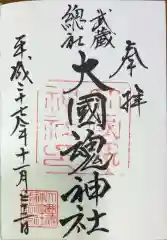 奉拝
武蔵
總社
大國魂神社
平成二十六年十一月二十二日